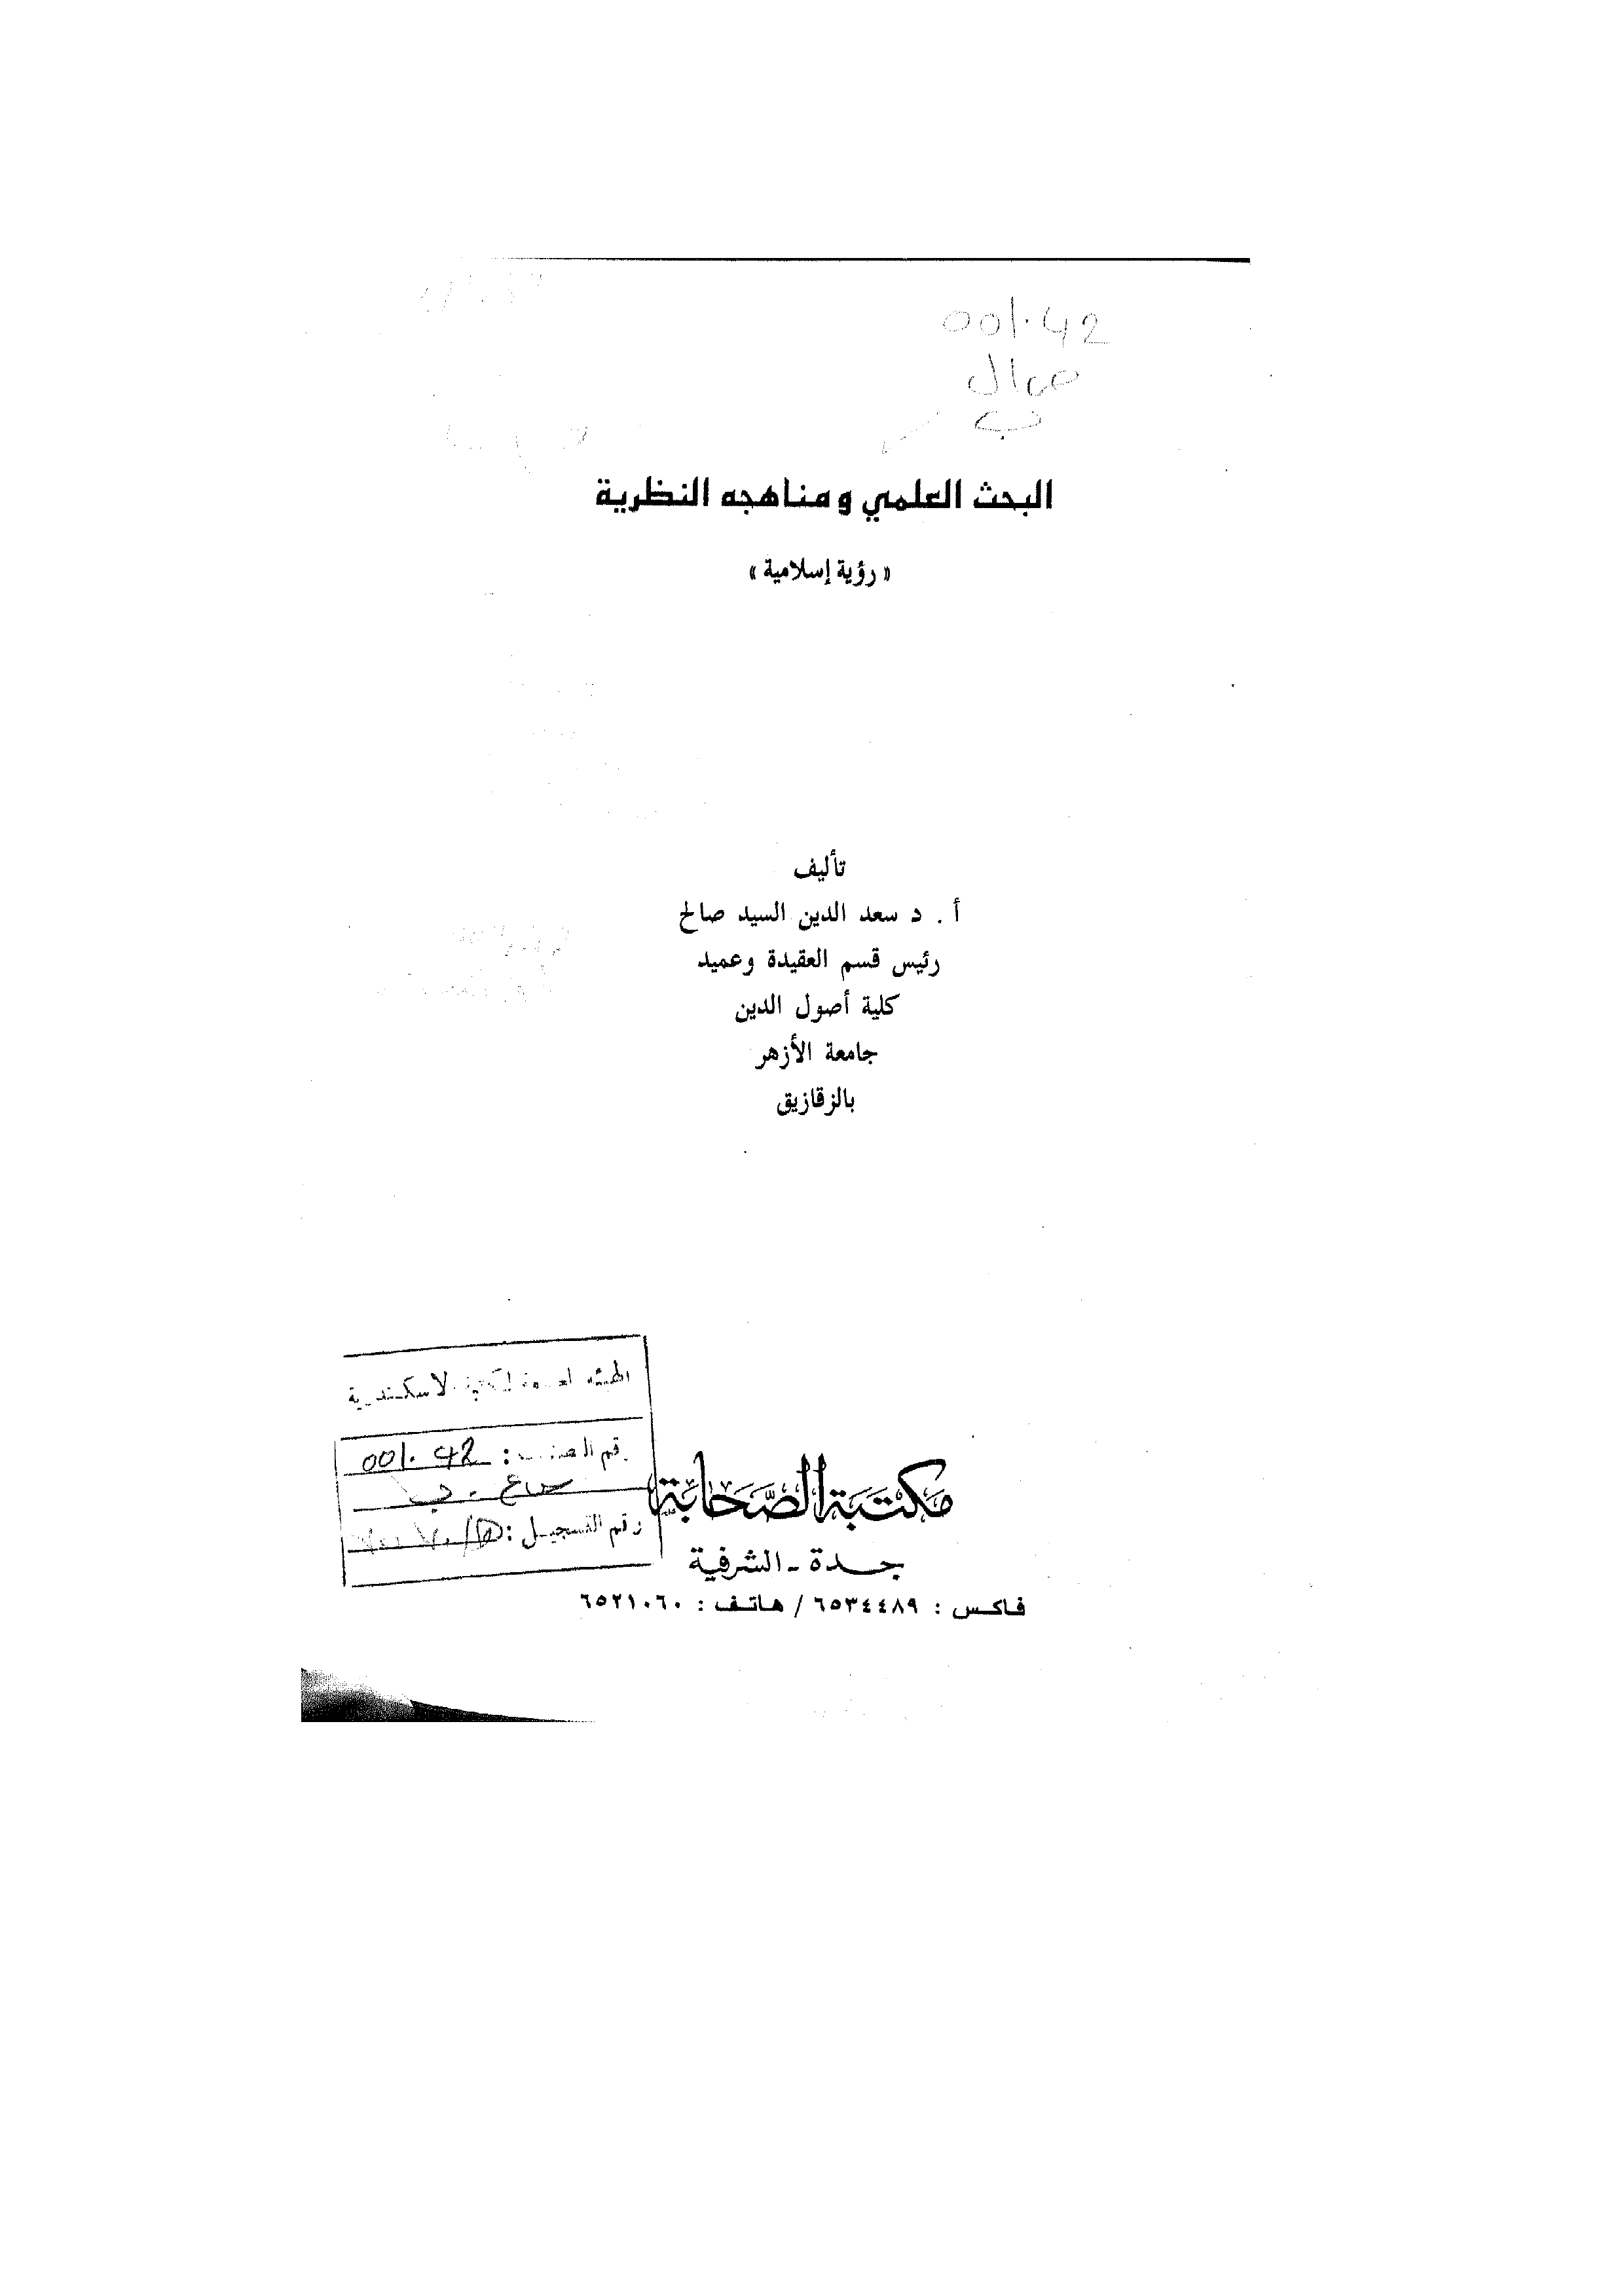 001.42
ص ا ل
ب
البحث العلمي ومناهجه النظرية
« رؤية إسلامية »
تأليف
أ . د سعد الدين السيد صالح
رئيس قسم العقيدة وعميد
كلية أصول الدين
جامعة الأزهر
بالزقازيق
الهيئة لمكتبة الاسكندرية
رقم : 001.42
رقم التسجيل :
مكتبة الصحابة
جـدة - الشرفية
فاكس : ٦٥٣٤٤٨٩ / هاتف : ٦٥٢١٠٦٠